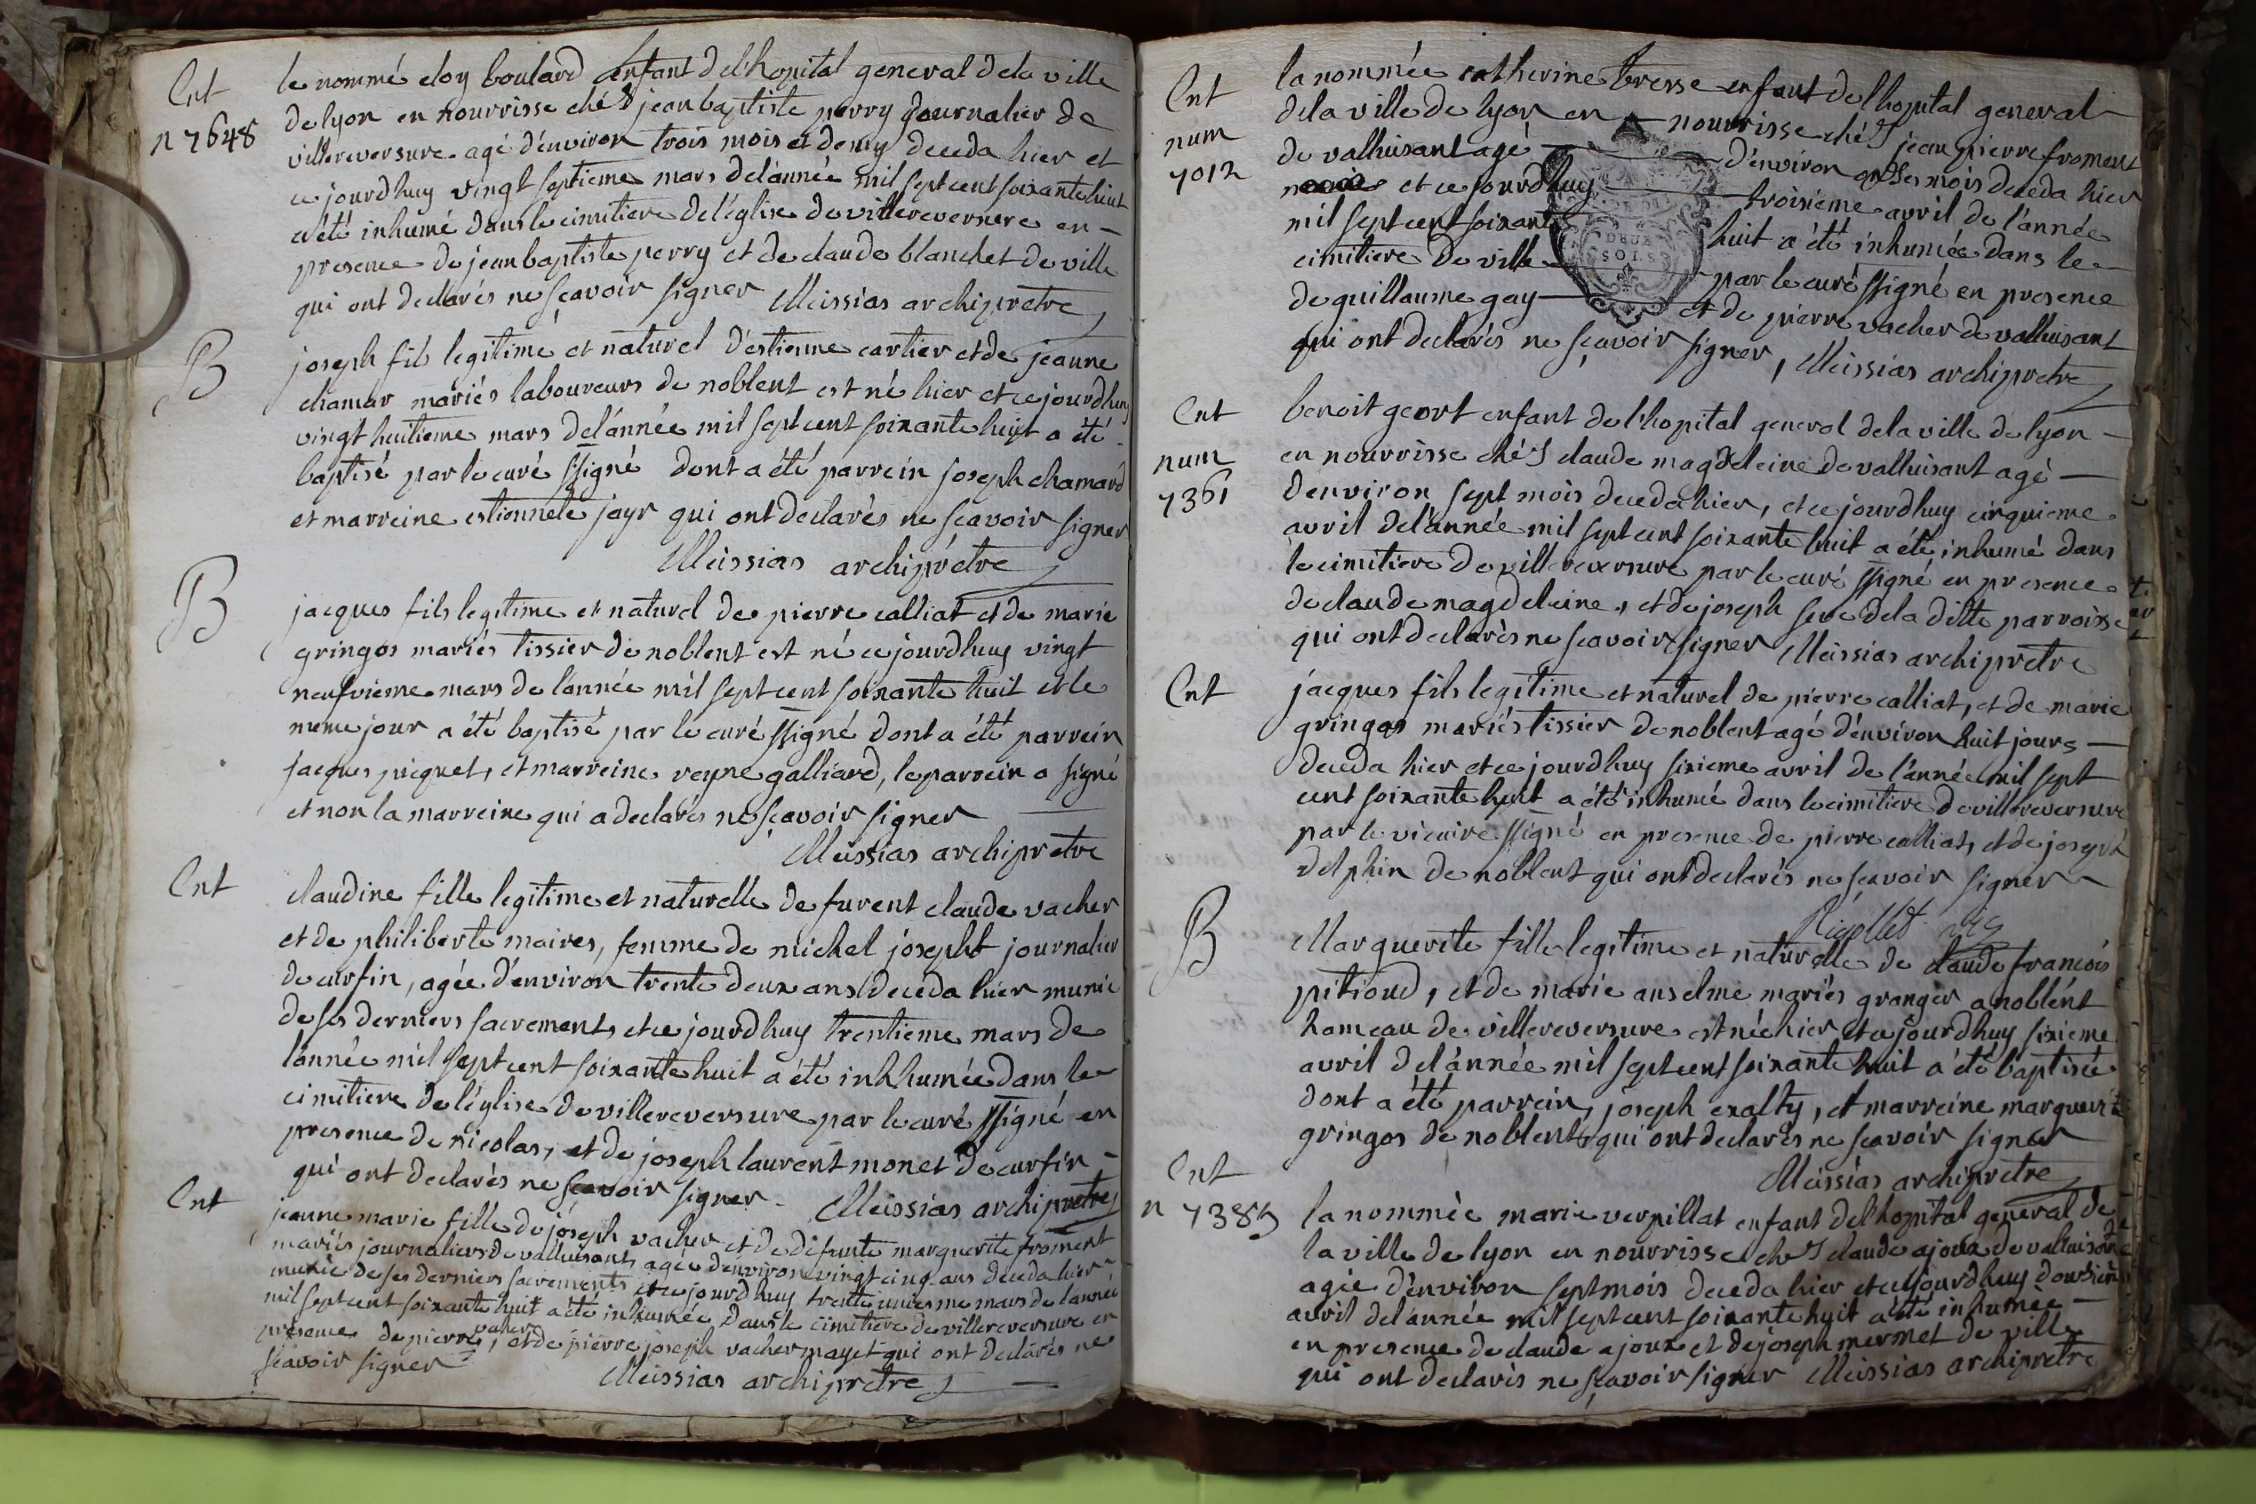 Ent
n 7648
le nommé eloy boulard enfant del'hopital general dela ville
de lyon en nourrisse chés jean baptiste perry journalier de
villereversure agé d'environ trois mois et demy deceda hier et
ce jourdhuy vingt septieme mars del'année mil sept cent soixante huit
a été inhumé dans le cimitiere del'église de villereversure en
presence de jean baptiste perry et de claude blanchet de ville
qui ont declarés ne sçavoir signer Meissias archipretre
B
joseph fils legitime et naturel d'estienne cartier et de jeanne
chamar mariés laboureurs de noblent est né hier et ce jourdhuy
vingt huitieme mars del'année mil sept cent soixante huit a été
baptisé par le curé ssigné dont a été parrein joseph chamard
et marreine estiennete jayr qui ont declarés ne scavoir signer
Meissias archiprêtre
B
jacques fils legitime et naturel de pierre calliat et de marie
gringos mariés tissier de noblent est né ce jourdhuy vingt
neufvieme mars de l'année mil sept cent soixante huit et le
meme jour a été baptisé par le curé ssigné dont a été parrein
jacques piquet, et marreine reyne galliard, le parrein a signé
et non la marreine qui a declarés ne sçavoir signer
Meissias archipretre
Ent
claudine fille legitime et naturelle de furent claude vacher
et de philiberte maires, femme de michel josepht journalier
de curfin, agée d'environ trente deux ans deceda hier munie
de ses derniers sacrements et ce jourdhuy trentieme mars de
l'année mil sept cent soixante huit a été inhhumée dans le
cimitiere de l'église de villereversure par le curé ssigné en
presence de nicolas, et de joseph laurent monet de curfin
qui ont declarés ne scavoir signer. Meissias archipretre
Ent
jeanne marie fille de joseph vacher et de defunte marguerite froment
mariés journaliers de valhuisant, agée d'environ vingt cinq ans deceda hier
munie de ses derniers sacrements et ce jourdhuy trente unieme mars de l'année
mil sept cent soixante huit a été inhumée dans le cimitiere de villereversure en
presence de pierre vacher, et de pierre joseph vacher mayet qui ont declarés ne
scavoir signer
Meissias archipretre
Ent
num
7012
la nommée catherine bresse enfant de l'hopital general
dela ville de lyon en nourrisse chés jean pierre froment
de valhuisant agé d'environ onses mois deceda hier
et ce jourdhuy troisieme avril de l'année
mil sept cent soixante huit a été inhumée dans le
cimitiere de ville par le curé ssigné en presence
de guillaume gay et de pierre vacher de valhuisant
qui ont declarés ne sçavoir signer, Meissias archipretre
DEUX
SOLS
Ent
num
7361
benoit geort enfant de l'hopital general dela ville de lyon
en nourrisse chés claude magdeleine de valhuisant agé
d'environ sept mois deceda hier, et ce jourdhuy cinquieme
avril del'année mil sept cent soixante huit a été inhumé dans
le cimitiere de villereversure par le curé ssigné en presence
de claude magdeleine, et de joseph seve dela ditte parroisse
qui ont declarés ne scavoir signer Meissias archipretre
Ent
jacques fils legitime et naturel de pierre calliat, et de marie
gringos mariés tissier de noblent agé d'environ huit jours
deceda hier et ce jourdhuy sixieme avril de l'année mil sept
cent soixante huit a été inhumé dans le cimitiere de villereversure
par le vicaire ssigné en presence de pierre calliat, et de joseph
delphin de noblent qui ont declarés ne scavoir signer
Rigollet vic
B
Marguerite fille legitime et naturelle de claude francois
pitioud, et de marie anselme mariés granger a noblent
hameau de villereversure est née hier et ce jourdhuy sixieme
avril del'année mil sept cent soixante huit a été baptisée
dont a été parrein, joseph exalty, et marreine marguerite
gringos de noblent, qui ont declarés ne scavoir signer
Meissias archipretre
Ent
n 7385
la nommée marie verpillat enfant del'hopital general de
la ville de lyon en nourrisse chés claude ajoux de valhuisant
agée d'environ sept mois deceda hier et ce jourdhuy dousieme
avril del'année mil sept cent soixante huit a été inhumée
en presence de claude ajoux et de joseph mermet de ville
qui ont declarés ne sçavoir signer Meissias archipretre